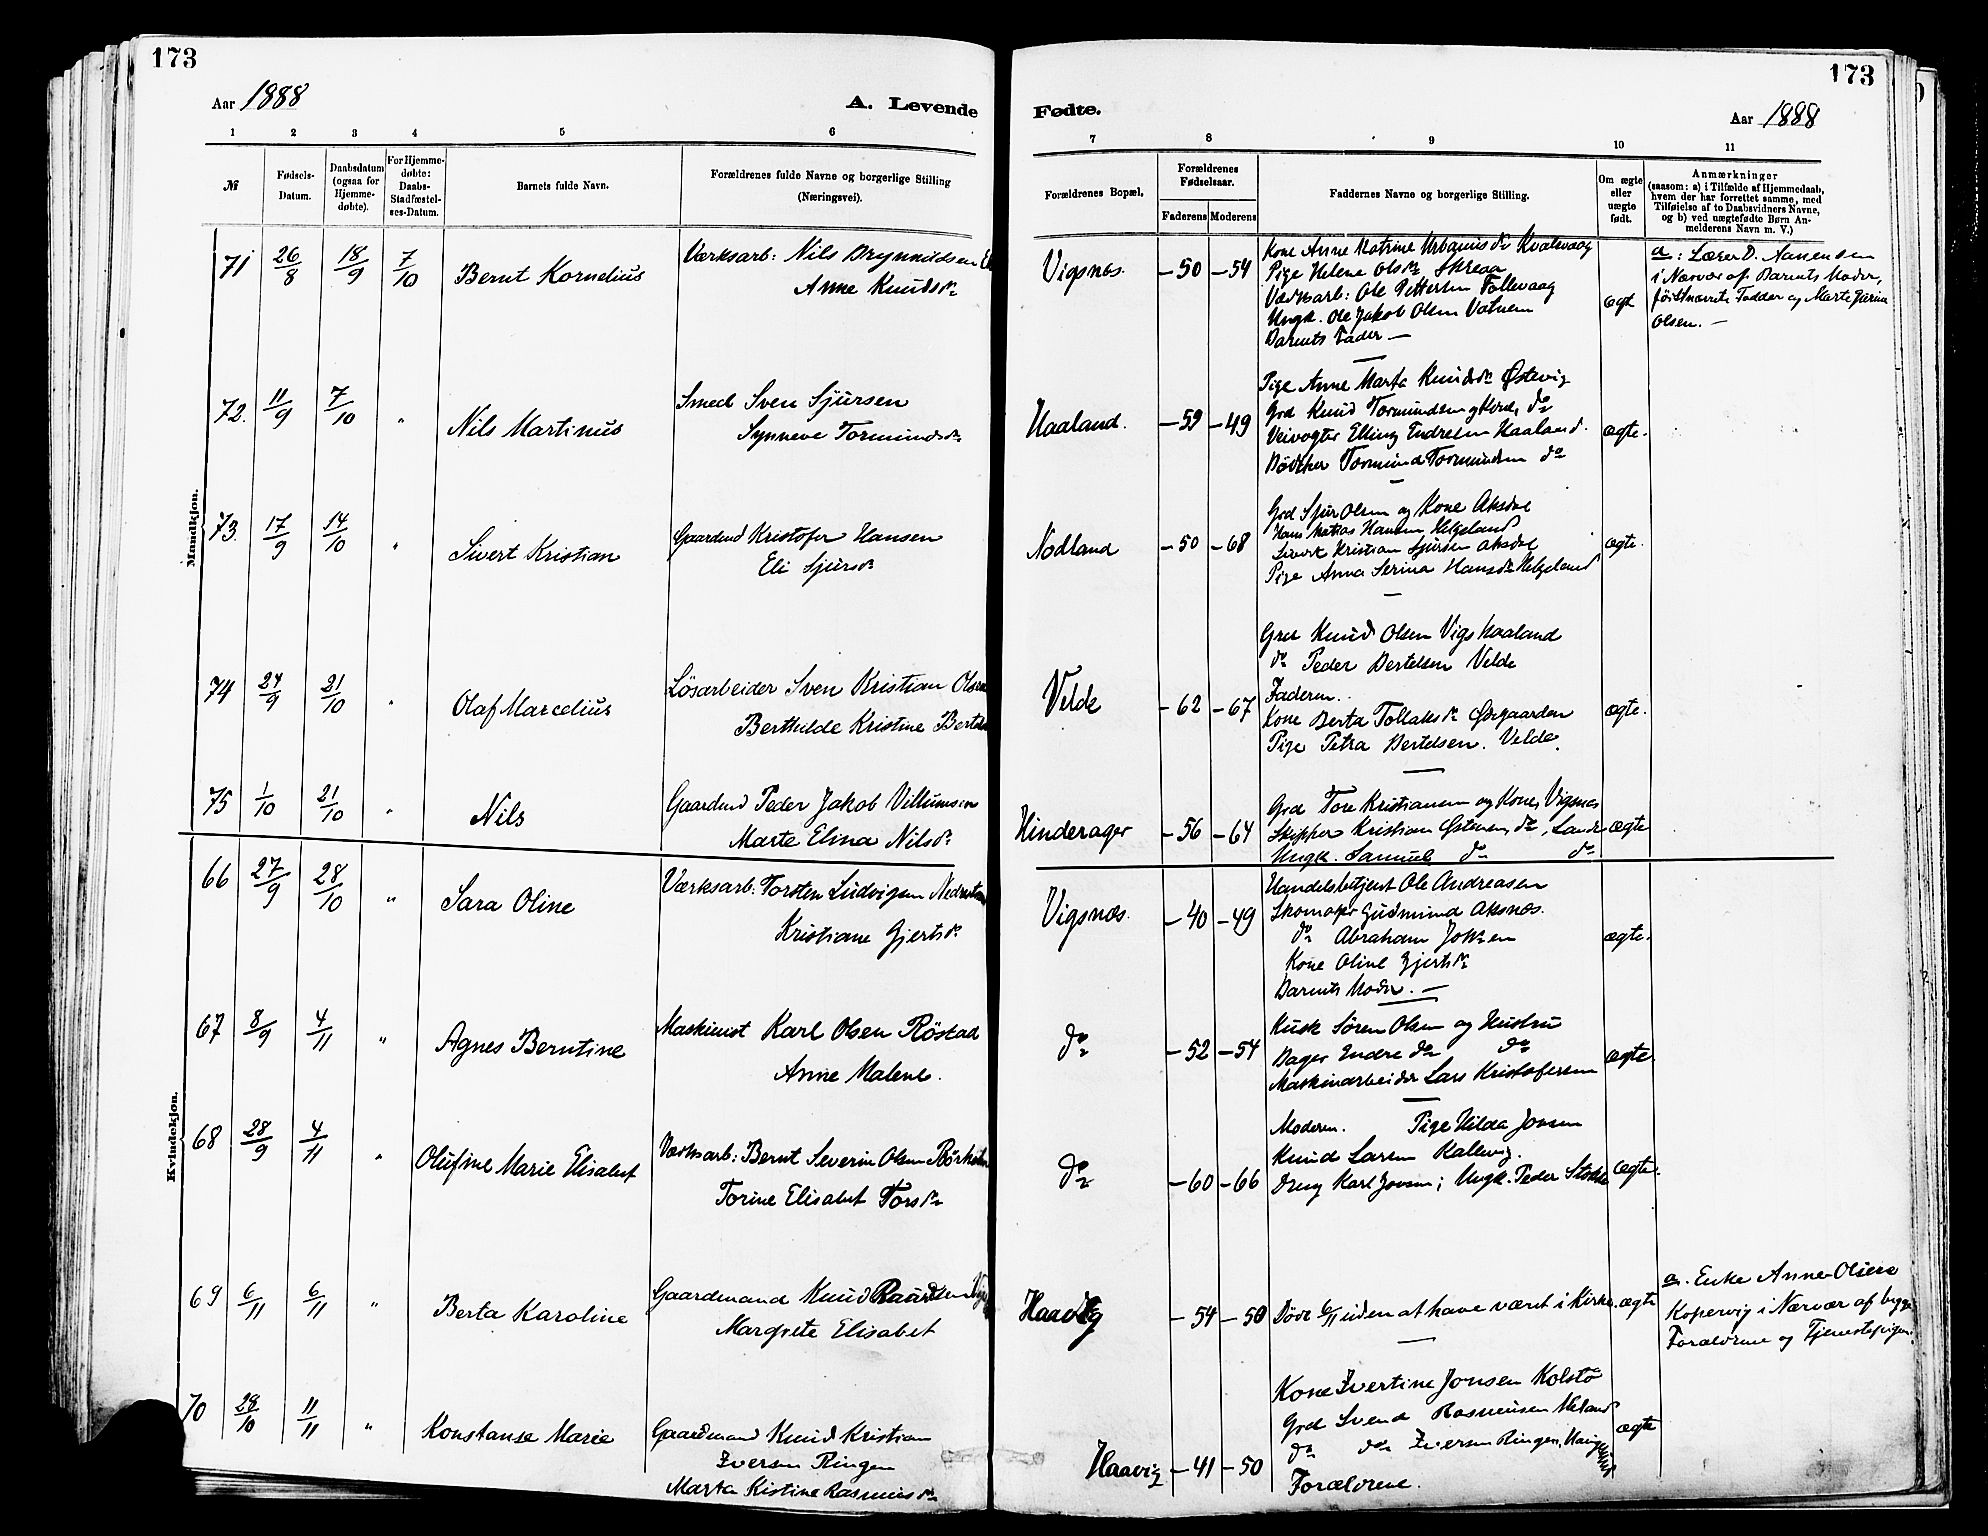 173
Aar 1888
A. Levende
1 2 3 4 5 6
№
Fødsels-
Datum.
Daabsdatum
(ogsaa for
Hjemme-
døbte).
For Hjemme-
døbte:
Daabs-
Stadfæstel-
ses-Datum.
Barnets fulde Navn.
Forældrenes fulde Navne og borgerlige Stilling
(Næringsvei).
Mandkjøn.
71 26/8 18/9 7/10 Bernt Kornelius
Værksarb: Nils Brynnildsen
Anne Knudsdr
72. 11/9 7/10 " Nils Martinus
Smed Sven Sjursen
Synneve Tormundsdr
73. 17/9 14/10 " Sivert Kristian
Gaardmd Kristofer Hansen
Eli Sjursdr
74 24/9 21/10 " Olaf Marcelius
Løsarbeider Sven Kristian Olsen
Berthilde Kristine
75 1/10 21/10 " Nils
Gaardmd Peder Jakob Villumsen
Marte Elina Nilsdr
Kvindekjøn.
66 27/9 28/10 " Sara Oline
Værksarb: Torsten Ludvigsen
Kristiane Gjertsdr
67 8/9 4/11 " Agnes Berntine
Maskinist Karl Olsen Röstad
Anne Malene.
68 28/9 4/11 " Olufine Marie Elisabet
Værksarb: Bernt Severin Olsen
Torine Elisabet Torsdr
69 6/11 6/11 " Berta Karoline
Gaardmand Knud
Margrete Elisabet
70 28/10 11/11 " Konstanse Marie
Gaardmand Knud Kristian
Iversen Ringen
Marta Kistine Rasmusdr
173
Fødte.
Aar 1888
7 8 9 10 11
Forældrenes Bopæl.
Forældrenes
Fødselsaar.
Faderens Moderens
Faddernes Navne og borgerlige Stilling.
Om ægte
eller
uægte
født.
Anmærkninger
(saasom: a) i Tilfælde af Hjemmedaab,
hvem der har forrettet samme, med
Tilføielse af to Daabsvidners Navne,
og b) ved uægtefødte Børn An-
melderens Navn m. V.)
Vigsnes. -50 -54
Kone Anne Katrine Urbanus dr Kvalevaag
Pige Helene Olsdr Skreaa
Værksarb: Ole Pettersen Follevaag
Ungk. Ole Jakob Olsen Vatnem
Barnets Fader —
ægt
a: Lærer D. Nanensen
i Nærvær af Barnets Moder,
førstnævnte Fadder og Marte
Olsen. —
Haaland. -59 -49
Pige Anne Marta Knudsdr Østevig
Grd Knud Tormundsen og Kone, do
Veivogter Elling Endresen Haaland.
Bödker Tormund Tormundsen do
ægte.
Nodland -50 -68
Grd Sjur Olsen og Kone Aksdal
Hans Matias Hansen Helgeland
Kristian Sjursen Aksdal
Pige Anna Serina Hansdr Helgeland
ægte.
Velde -62 -67
Grd Knud Olsen Vigs Haaland
do Peder Bertelsen Velde
Faderen.
Kone Berta Tollaksdr Østgaarden
Pige Petra Bertelsen. Velde.
ægte.
Hinderager -56 -64
Grd Tore Kristiansen og Kone, Vigsnes
Skipper Kristian Østensen, do,
Ungk. Samuel do do
ægte
Vigsnæs. -40 -49
Handelsbetjent Ole Andreasen
Skomager Gudmund Aksnæs.
do Abraham
Kone Oline Gjertsdr
Barnets Moder. —
ægte.
do -52 -54
Kusk Sören Olsen og Hustru
Bager Endre do do
Maskinarbeider Lars Kristofersen
ægte.
do -60 -66
Moderen. Pige Hilda Jonsen
Knud Larsen Kallevig.
Dreng Karl Jonsen; Ungk. Peder
ægte.
Haavig -54 -50
Døde 6/11 uden at have været i Kirke.
ægte
a. Enke Anne Olsen
Kopervig i Nærvær af begge
Forældrene og Tjenestepigen.
Haavig -41 -50
Kone Ivertine Jonsen Kolstö
Grd Svend Rasmussen Meland
do do Iversen Ringen,
Forældrene.
ægte